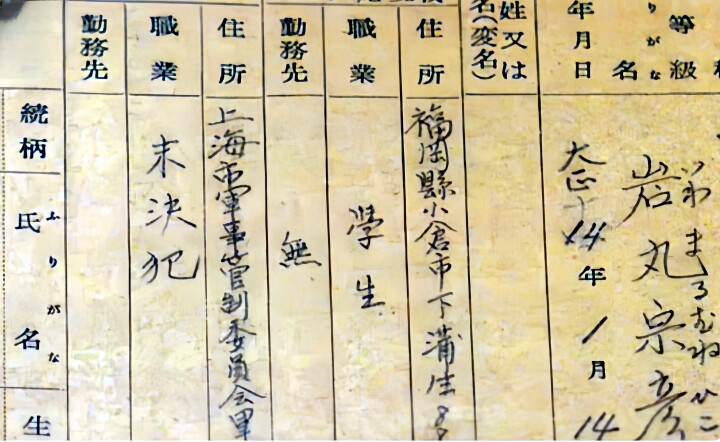 等級
ふりがな
いわまるむねひこ
名 岩丸宗彦
年月日 大正14年1月14
姓又は
名(変名)
住所 福岡縣小倉市下蒲生8
職業 學生
勤務先 無
住所 上海市軍事管制委員会
職業 未決犯
勤務先
続柄
ふりがな
氏名
生